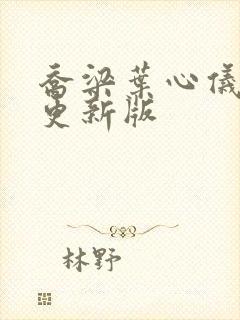 乔梁叶心仪
更新版
林野